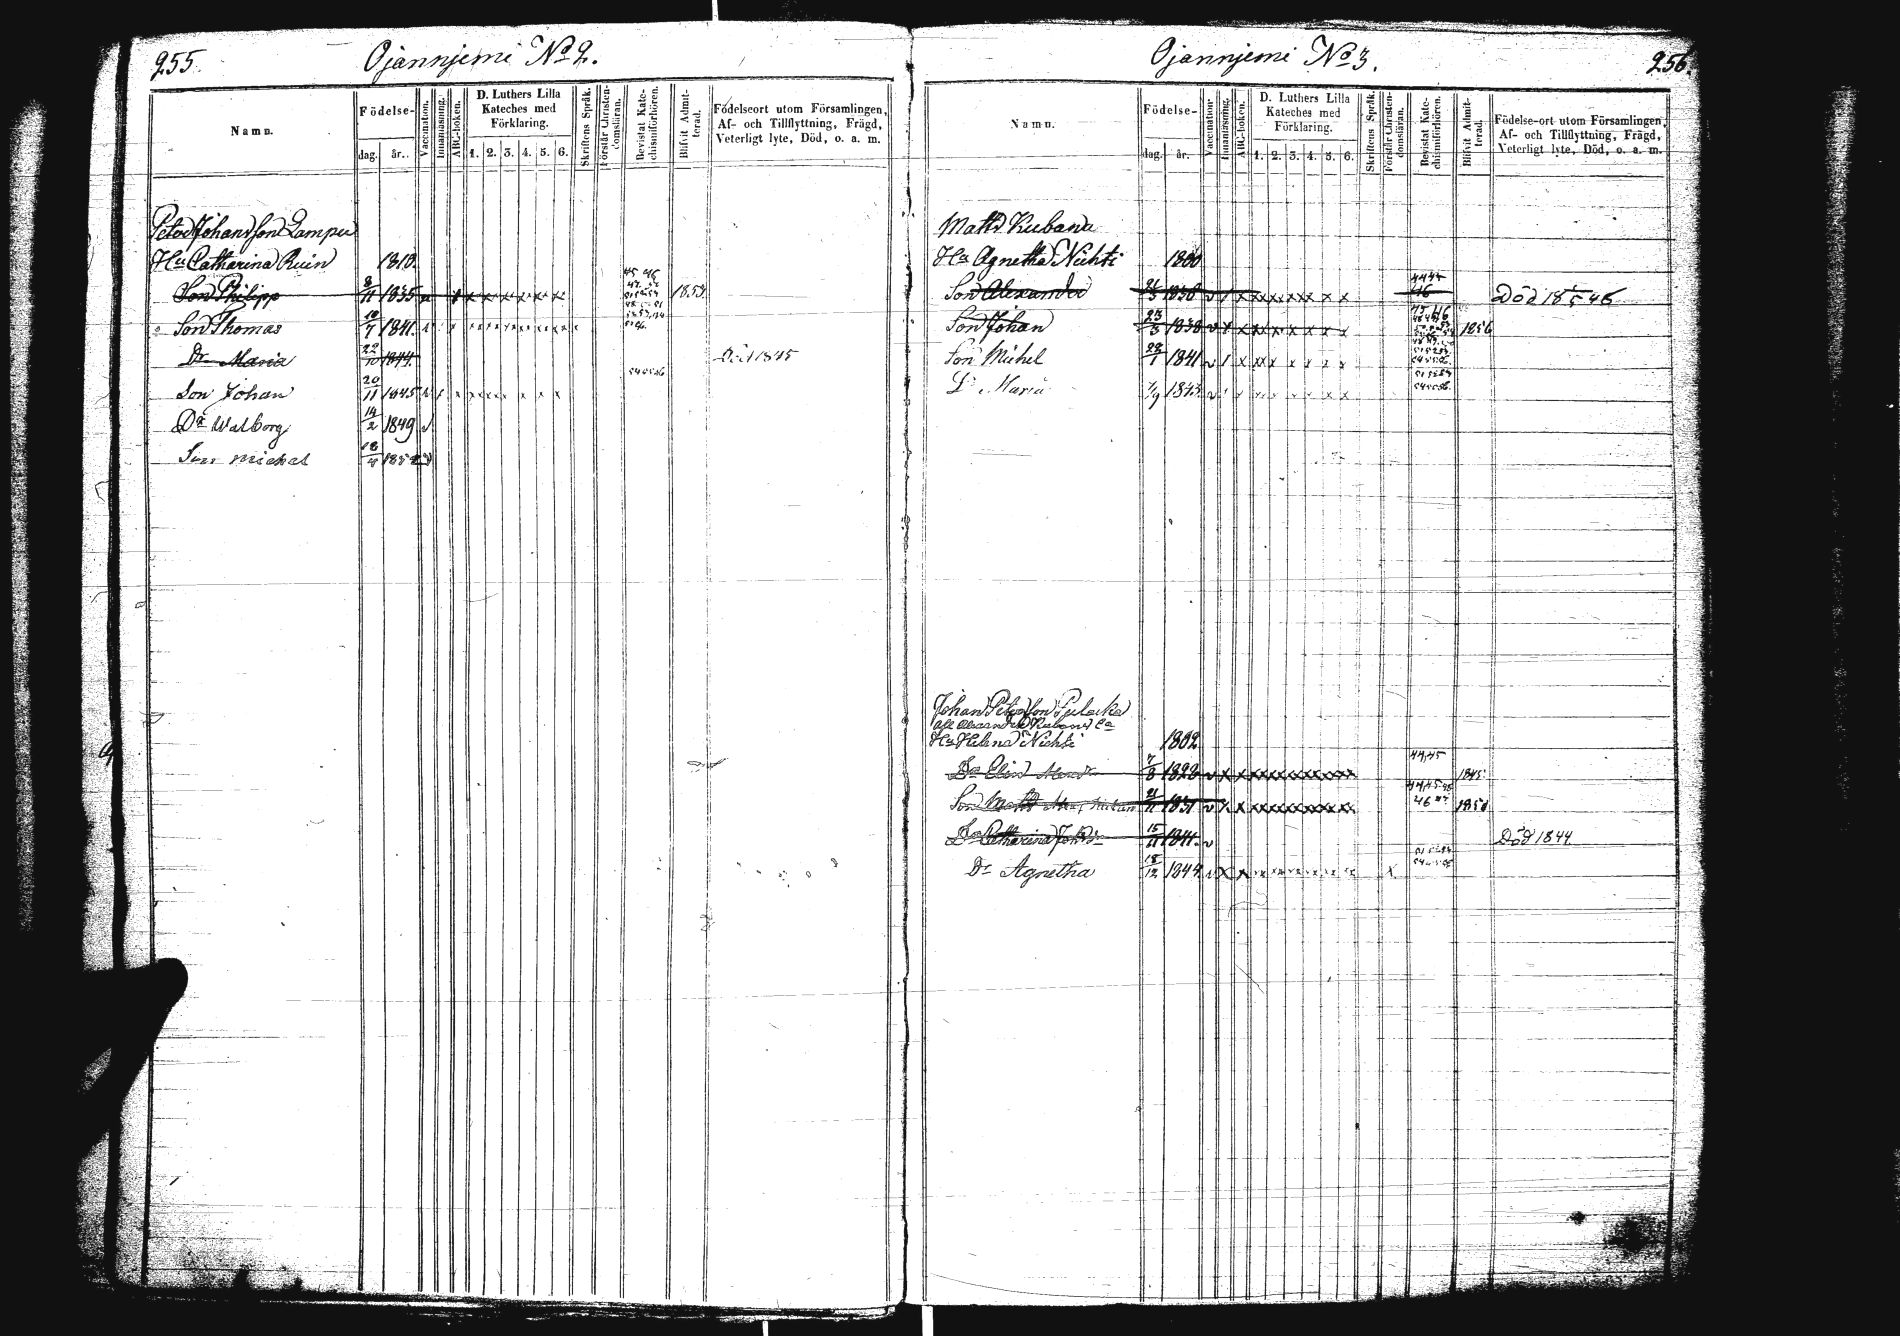 255. Ojannjemi No 2.
Namn.
Födelse-
dag. år.
Vaccination.
Innanläsning.
ABC-boken.
D. Luthers Lilla
Kateches med
Förklaring.
1. 2. 3. 4. 5. 6.
Skriftens Språk.
Förstår Christen-
domsläran.
Bevistat Kate-
chismiförhören.
Blifvit Admit-
terad.
Födelseort utom Församlingen,
Af- och Tillflyttning, Frägd,
Veterligt lyte, Död, o. a. m.
Peter Johansson Lampu
Hu Catharina Ruin 1810.
Son Philipp 8/11 1835 1853
Son Thomas 10/7 1841.
Dr Maria 22/10 1844. Död 1845
Son Johan 20/11 1845 545556
Dr Walborg 14/2 1849
Son Michel 18/ 185
Ojannjemi No 3. 256.
Namn.
Födelse-
dag. år.
Vaccination
Innanläsning.
ABC-boken.
D. Luthers Lilla
Kateches med
Förklaring.
1. 2. 3. 4. 5. 6.
Skriftens Språk.
Förstår Christen-
domsläran.
Bevistat Kate-
chismiförhören.
Blifvit Admit-
terad.
Födelse-ort utom Församlingen,
Af- och Tillflyttning, Frägd,
Veterligt lyte, Död, o. a. m.
Matts Kubana
Hu Agnetha Nichti 1800
Son Alexander 1838 46 Död 18 5 46
Son Johan 25/3 1838 45 46 1856
Son Michel 29/1 1841
Dr Maria 7/9 1843 545556
Johan Petersson Pulacka
Hu Helena Nichti 1802
Dr Elin 7/8 1828 44,45 1845
Son Matts 21/11 1831 185
Dr Catharina Johsdr 15/11 1841. Död 1844
Dr Agnetha 18/12 1844